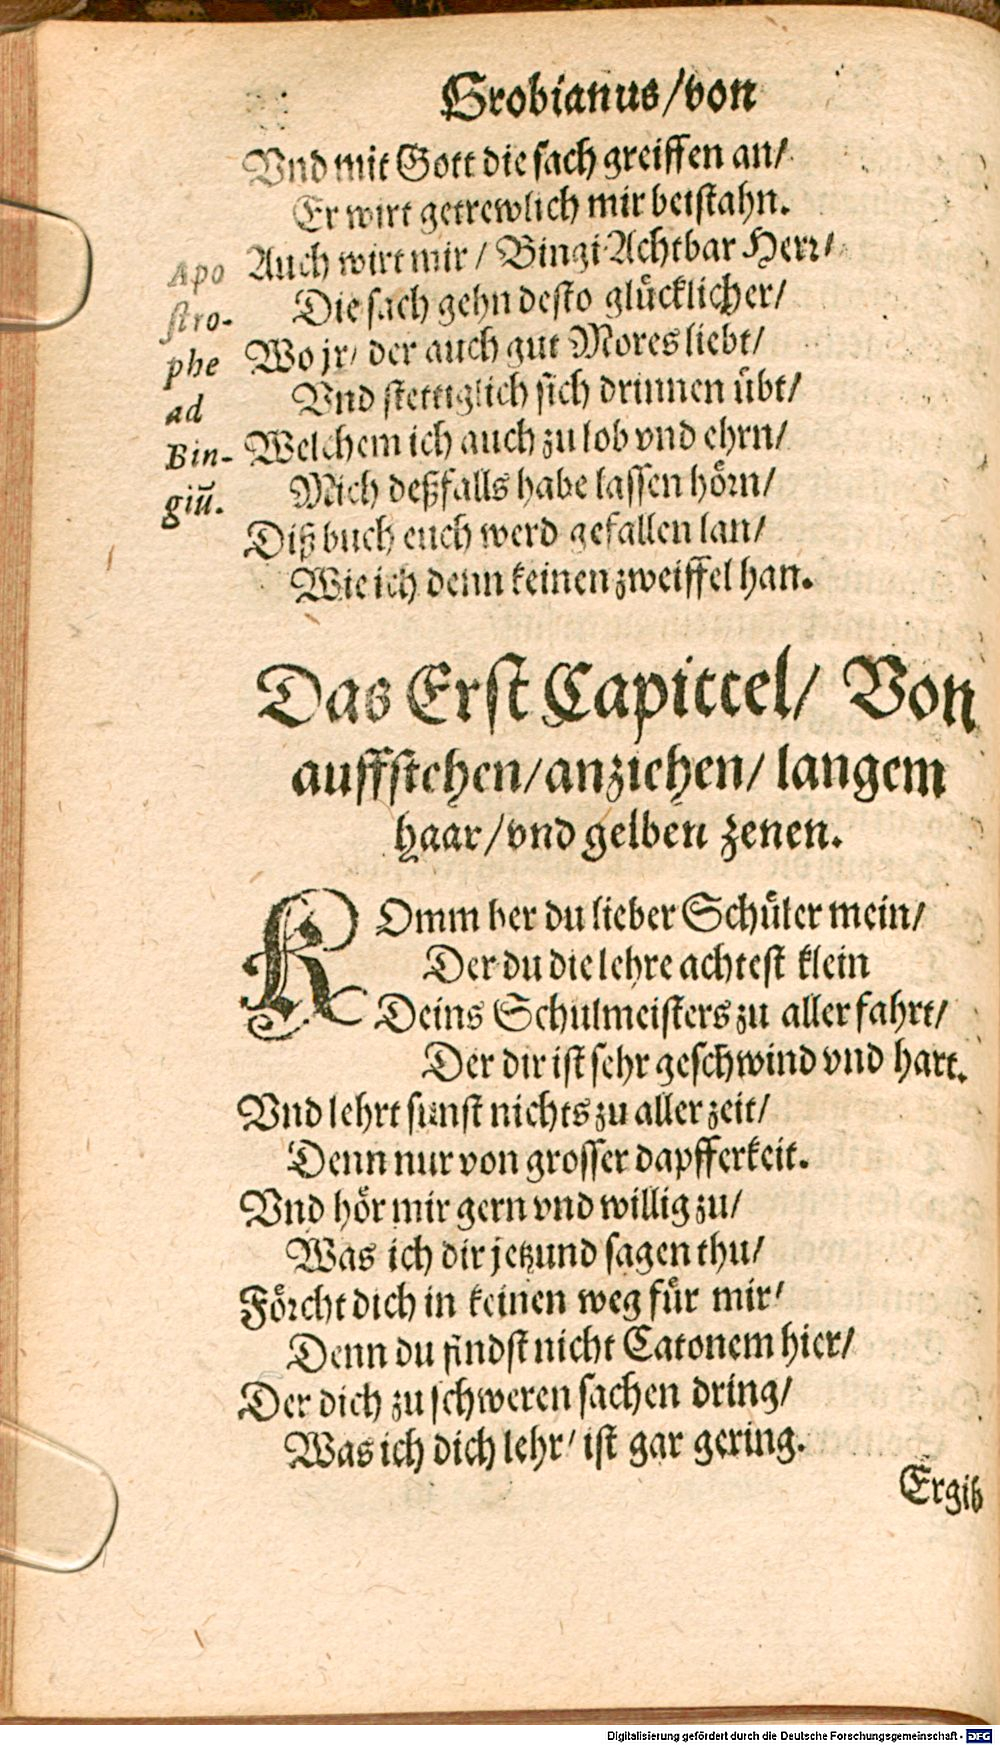 Grobianus / von
Vnd mit Gott die sach greiffen an /
Er wirt getrewlich mir beistahn.
Auch wirt mir / Bingi Achtbar Herr /
Die sach gehn desto glücklicher /
Wo jr / der auch gut Mores liebt /
Vnd stettiglich sich drinnen übt /
Welchem ich auch zu lob vnd ehrn /
Mich deßfalls habe lassen hörn /
Diß buch euch werd gefallen lan /
Wie ich denn keinen zweiffel han.
Apo
stro-
phe
ad
Bin-
giū.
Das Erst Capittel / Von
auffstehen / anziehen / langem
haar / vnd gelben zenen.
KOmm her du lieber Schüler mein /
Der du die lehre achtest klein
Deins Schulmeisters zu aller fahrt /
Der dir ist sehr geschwind vnd hart.
Vnd lehrt sunst nichts zu aller zeit /
Denn nur von grosser dapfferkeit.
Vnd hör mir gern vnd willig zu /
Was ich dir jetzund sagen thu /
Förcht dich in keinen weg für mir /
Denn du findst nicht Catonem hier /
Der dich zu schweren sachen dring /
Was ich dich lehr / ist gar gering.
Ergib
Digitalisierung gefördert durch die Deutsche Forschungsgemeinschaft - DFG